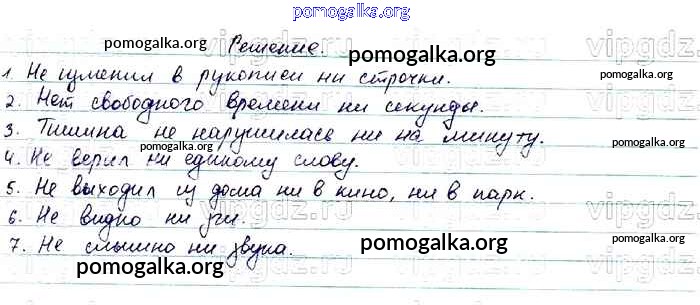 pomogalka.org
Решение.
pomogalka.org
pomogalka.org
vipgdz.ru
1. Не изменил в рукописи ни строчки.
pomogalka.org
2. Нет свободного времени ни секунды.
vipgdz.ru
3. Тишина не нарушилась ни на минуту.
4. Не верил ни единому слову.
5. Не выходил из дома ни в кино, ни в парк.
vipgdz.ru
6. Не видно ни зги.
vipgdz.ru
7. Не слышно ни звука.
pomogalka.org
pomogalka.org
pomogalka.org
vipgdz.ru